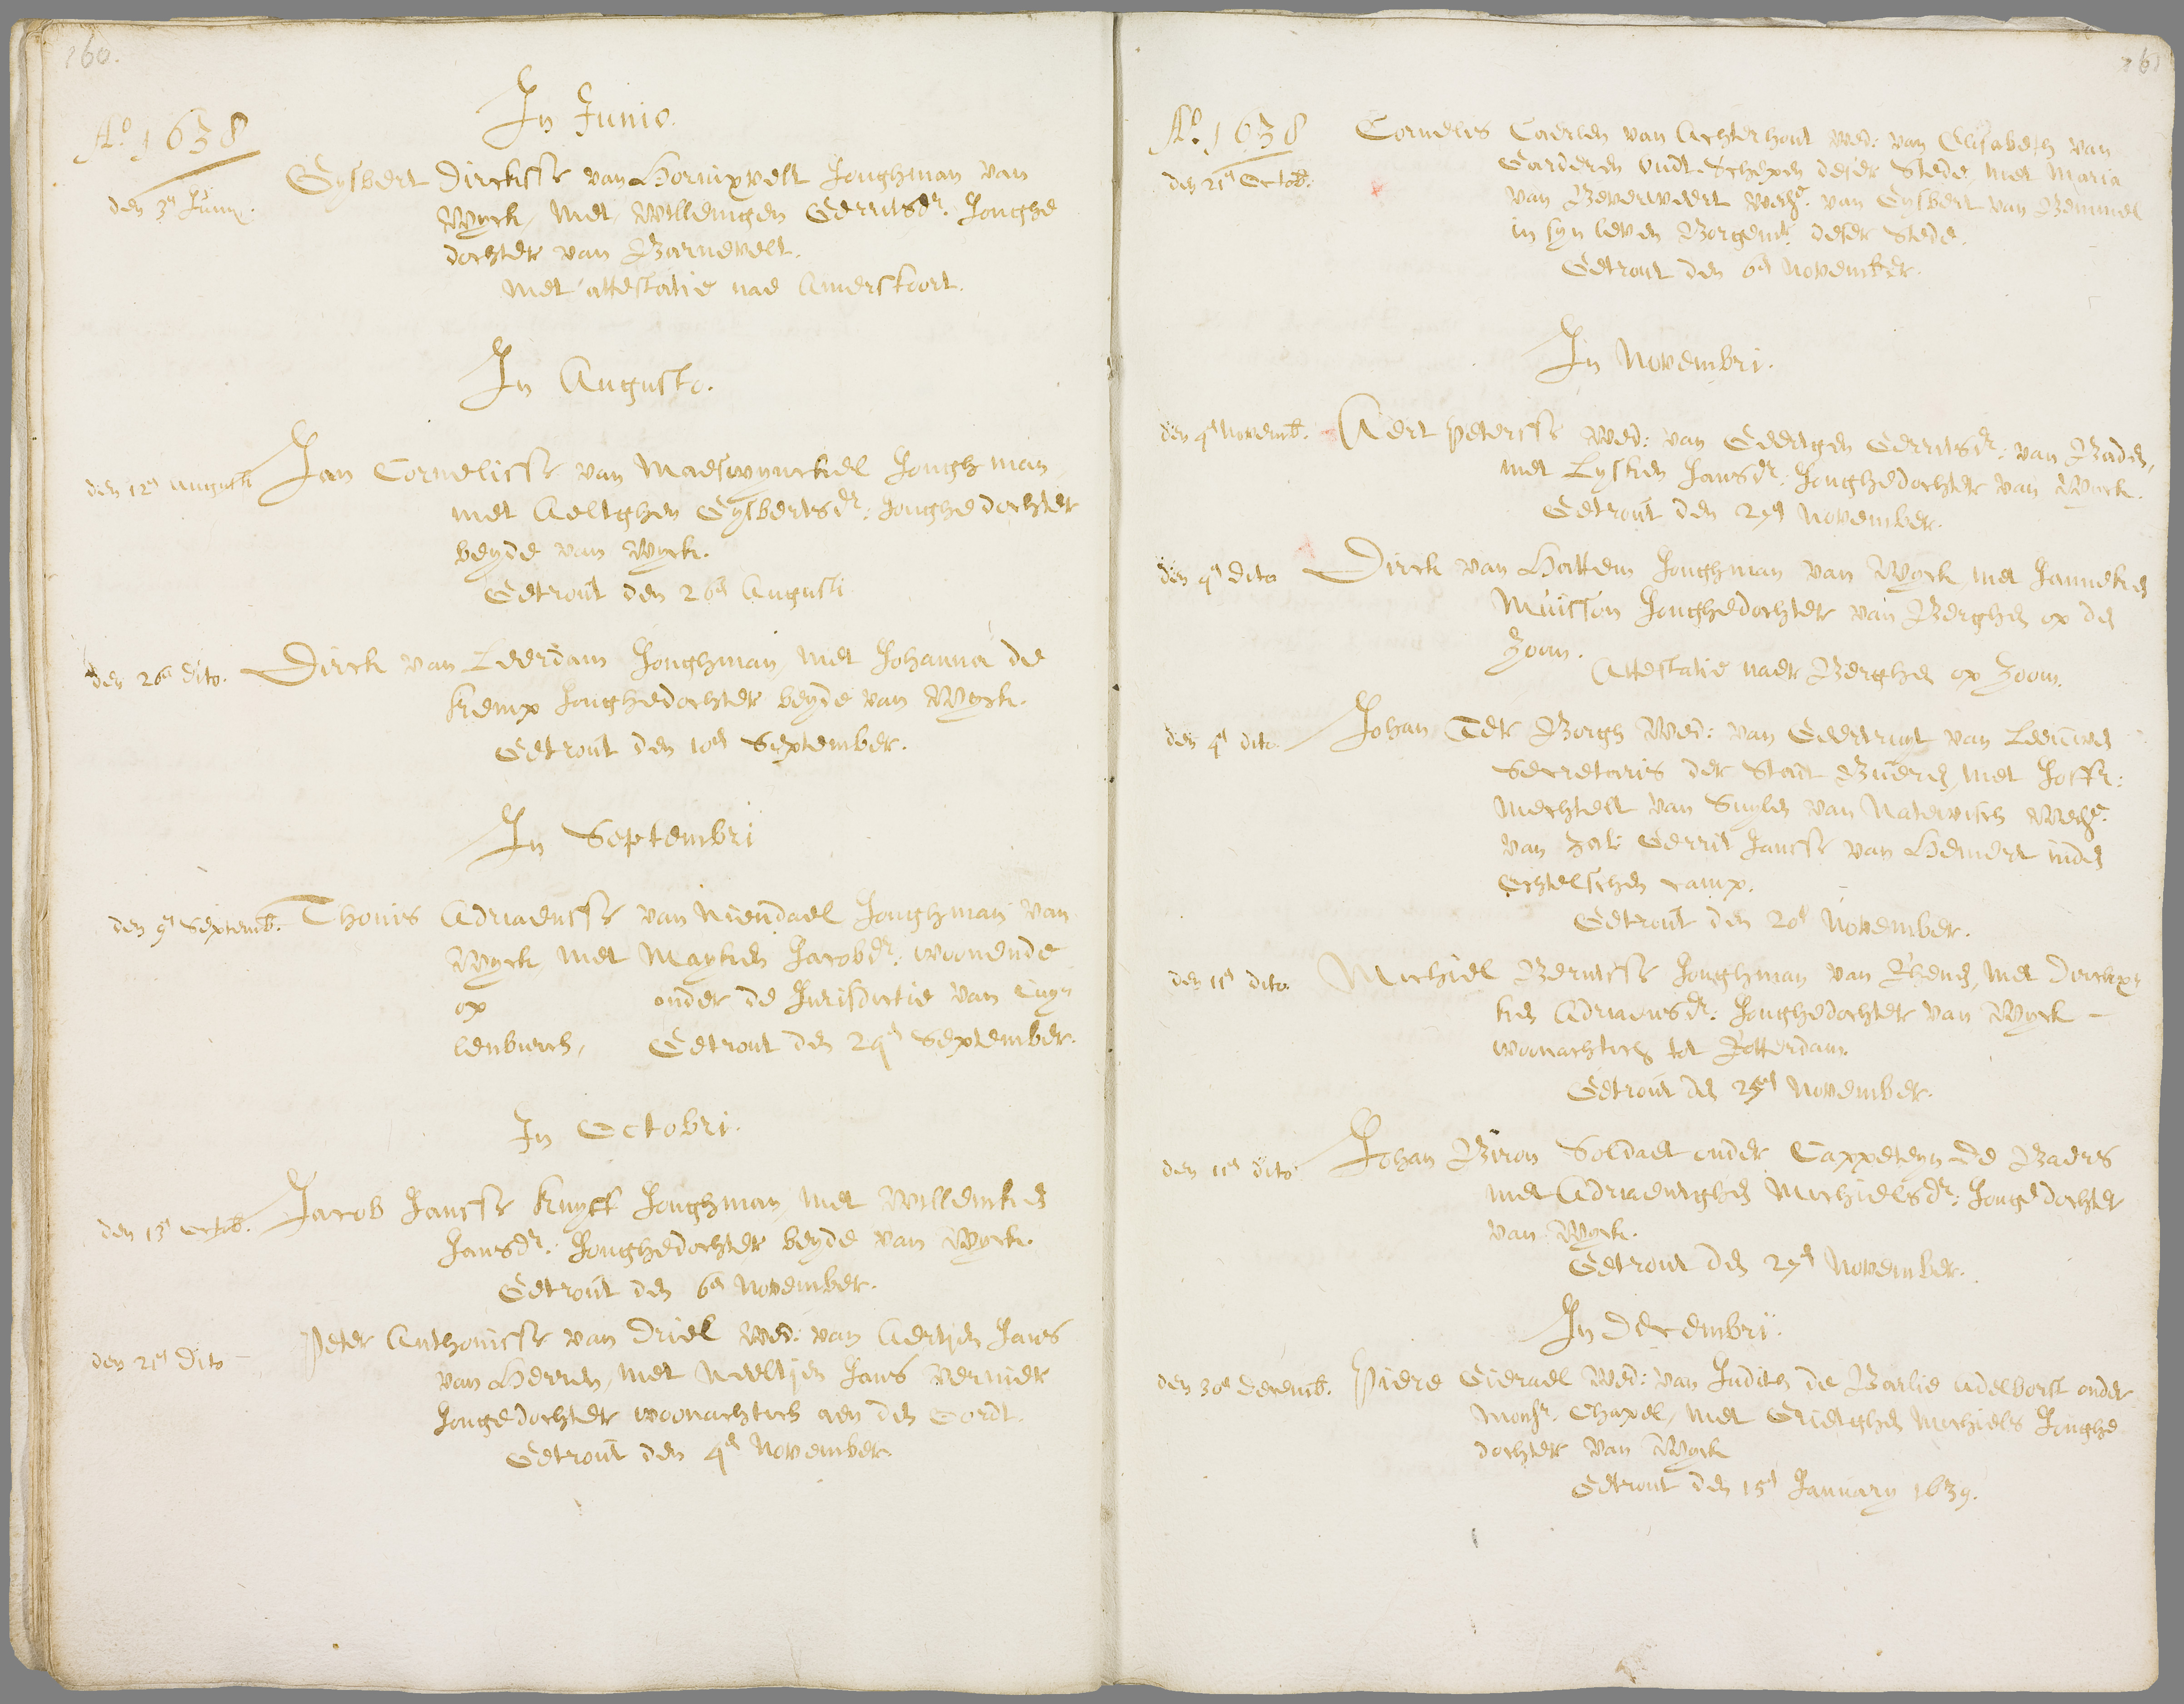 160.
In Junio.
Aº. 1638
den 3en Junij.
Gysbert Dirckssē van Hornixvelt Jonghman van
Wyck, met Willemtgen Gerritsdr. Jonghe
dochter van Barnevelt.
Met attestatie nae Amersfoort.
In Augusto.
den 12en Augusti
Jan Cornelissē van Maeswynckel Jonghman,
met Aeltghen Gysbertsdr: Jonghedochter
beyde van Wyck.
Getrout den 26en Augusti
den 26en dito.
Dirck van Leerdam Jonghman, met Johanna de
Kemp Jonghedochter beyde van Wyck.
Getrout den 10en September.
In Septembri
den 9en Septemb.
Thonis Adriaenssē van Niendael Jonghman van
Wyck, met Mayken Jacobdr: woonende
op onder de Jurisdictie van Cuy=
lenburch, Getrout den 29en September.
In Octobri.
den 13en Octob.
Jacob Janssē Kuyff Jonghman, met Willemken
Jansdr: Jonghedochter beyde van Wyck.
Getrout den 6en November.
den 21en dito
Peter Anthonissē van Driel Wed: van Aertjen Jans
van Herren, met Neeltjen Jans Vermeer
Jongedochter woonachtich aen den Oordt.
Getrout den 4en November.
161
Aº. 1638
den 21en Octob.
Cornelis Caerlen van Achterhout Wed: van Elisabeth van
Garderen Oudt Schepen deser Stede, met Maria
van Beverweert Wedue. van Gysbert van Bemmel
in syn leven Borgemr. deser Stede.
Getrout den 6en November.
In Novembri.
den 4en Novemb.
Aert Peterssē Wed: van Geertgen Gerritsdr: van Baden,
met Lysken Jansdr: Jonghedochter van Wyck.
Getrout den 27en November.
den 4en dito
Dirck van Hattem Jonghman van Wyck, met Janneken
Muisson Jonghedochter van Berghen op den
Zoom.
Attestatie naer Berghen op Zoom.
den 4en dito
Johan Ter Borgh Wed: van Geertruyt van Leeuwen
Secretaris der Stadt Bueren, met Joffr:
Mechtelt van Suylen van Natewisch Wedue.
van Zal: Gerrit Janssē van Hemert inden
Echtelschen camp.
Getrout den 20en November.
den 11en dito.
Michiel Berntssē Jonghman van Rhenen, met Dirckx=
ken Adriaensdr: Jonghedochter van Wyck
woonachtich tot Rotterdam.
Getrout den 25en November.
den 11en dito
Johan Biron Soldaet onder Cappeteyn de Baers
met Adriaentghen Michielsdr: Jongedochter
van Wyck.
Getrout den 27en November.
In Decembri.
den 30en Decemb.
Piere Gierael Wed: van Judith de Barlie Adelborst onder
Monsr. Chapel, met Grietghen Michiels Jonghe
dochter van Wyck
Getrout den 15en January 1639.